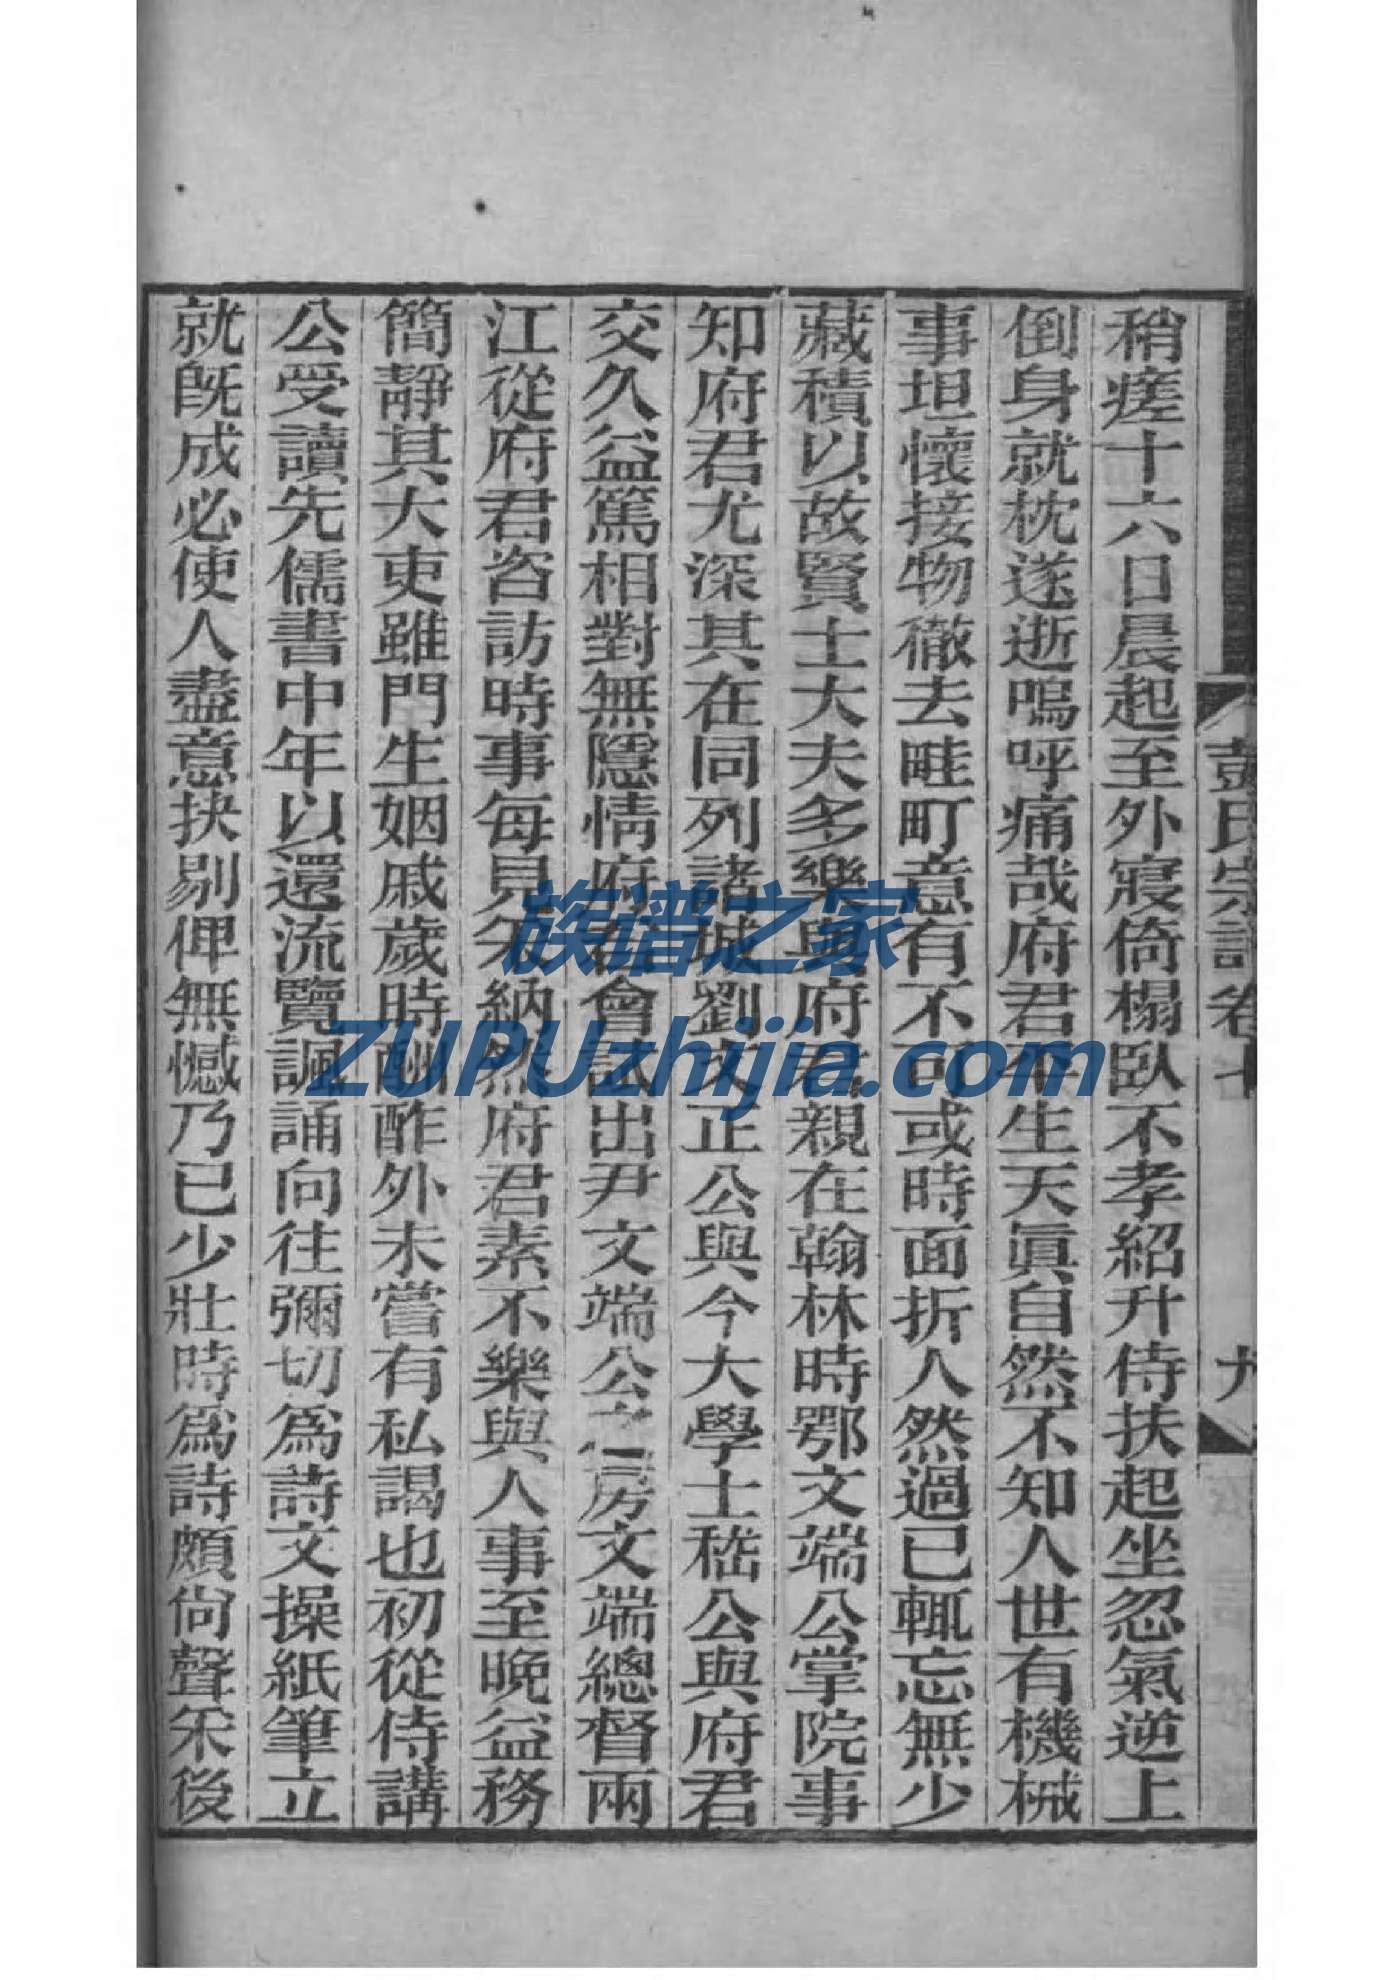 彭氏宗譜 卷七 九
稍瘥十六日晨起至外寢倚榻臥不孝紹升侍扶起坐忽氣逆上
倒身就枕遂逝嗚呼痛哉府君平生天眞自然不知人世有機械
事坦懷接物徹去畦町意有不可或時面折人然過已輒忘無少
藏積以故賢士大夫多樂與府君親在翰林時鄂文端公掌院事
知府君尤深其在同列諸城劉文正公與今大學士嵇公與府君
交久益篤相對無隱情府君會試出尹文端公之房文端總督兩
江從府君咨訪時事每見采納然府君素不樂與人事至晚益務
簡靜其大吏雖門生姻戚歲時酬酢外未嘗有私謁也初從侍講
公受讀先儒書中年以還流覽諷誦向往彌切爲詩文操紙筆立
就旣成必使人盡意抉剔俾無憾乃已少壯時爲詩頗尙聲采後
族谱之家
ZUPUzhijia.com